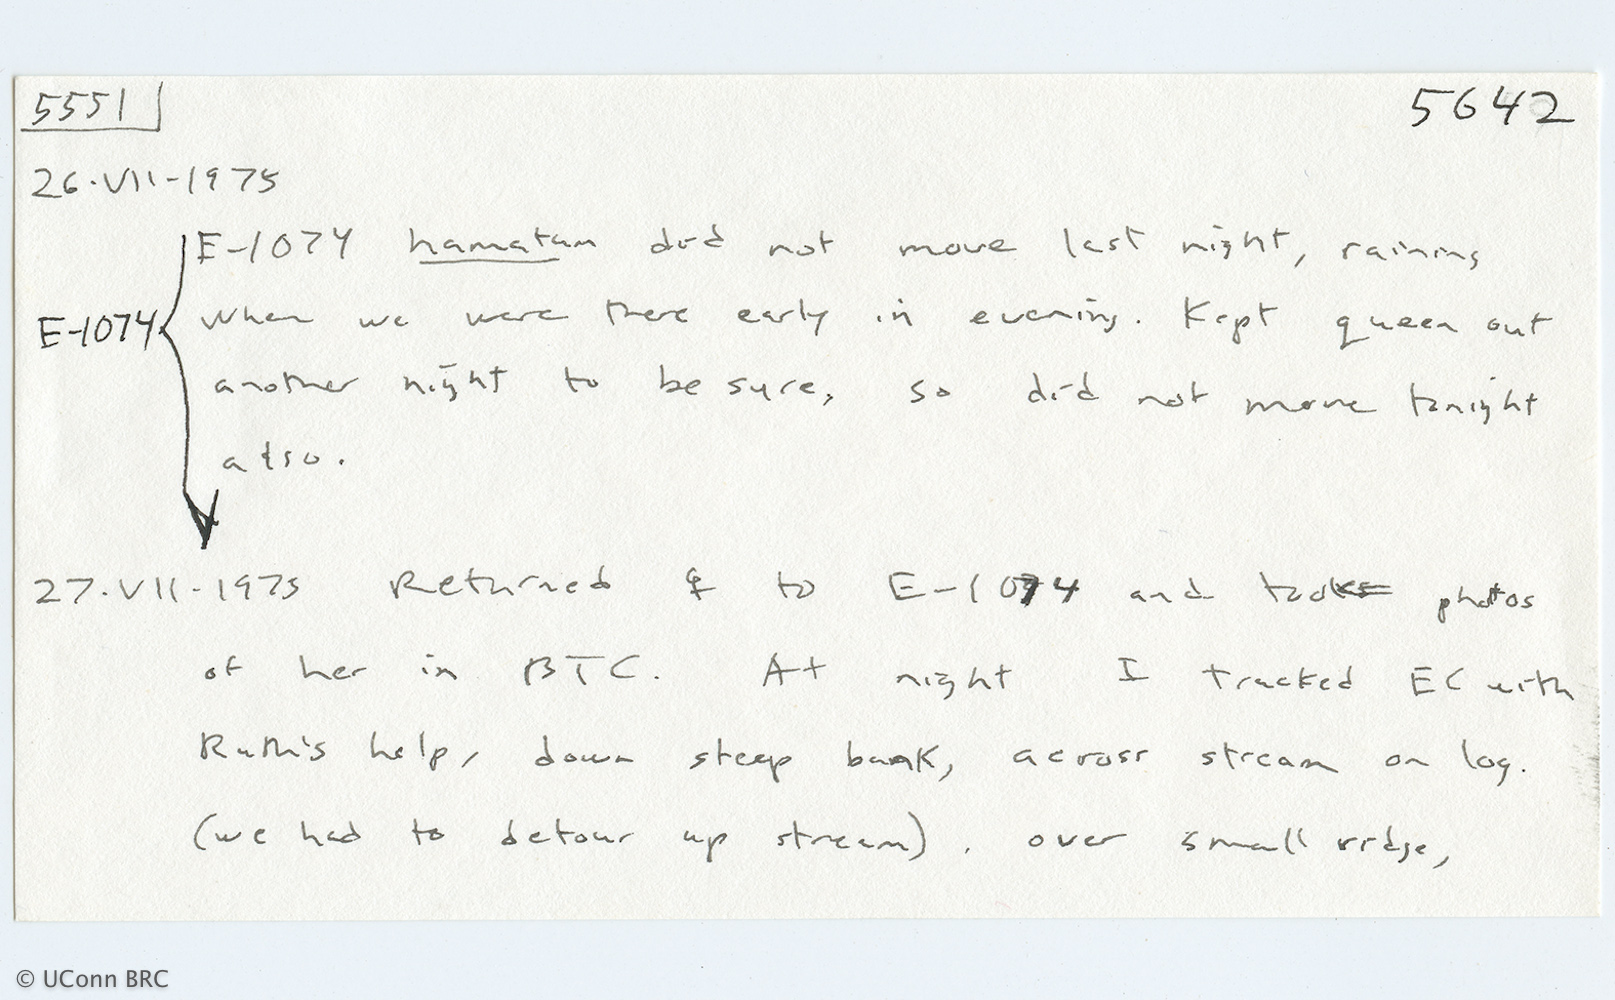 5551
5642
26.VII-1975
E-1074 hamatum did not move last night, raining
E-1074
when we were there early in evening. Kept queen out
another night to be sure, so did not move tonight
also.
27.VII-1975 Returned ♀ to E-1074 and took photos
of her in BTC. At night I tracked EC with
Ruth's help, down steep bank, across stream on log.
(we had to detour up stream). over small ridge,
© UConn BRC